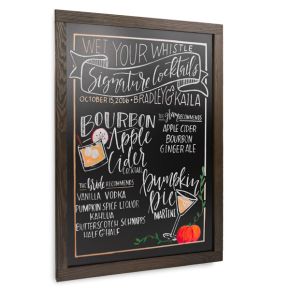 WET YOUR WHISTLE
Signature Cocktails
OCTOBER 15, 2016 • BRADLEY & KAILA
BOURBON
Apple
Cider
COCKTAIL
The groom RECOMMENDS
APPLE CIDER
BOURBON
GINGER ALE
The bride RECOMMENDS
VANILLA VODKA
PUMPKIN SPICE LIQUOR
KAHLUA
BUTTERSCOTCH SCHNAPPS
HALF & HALF
Pumpkin
Pie
MARTINI